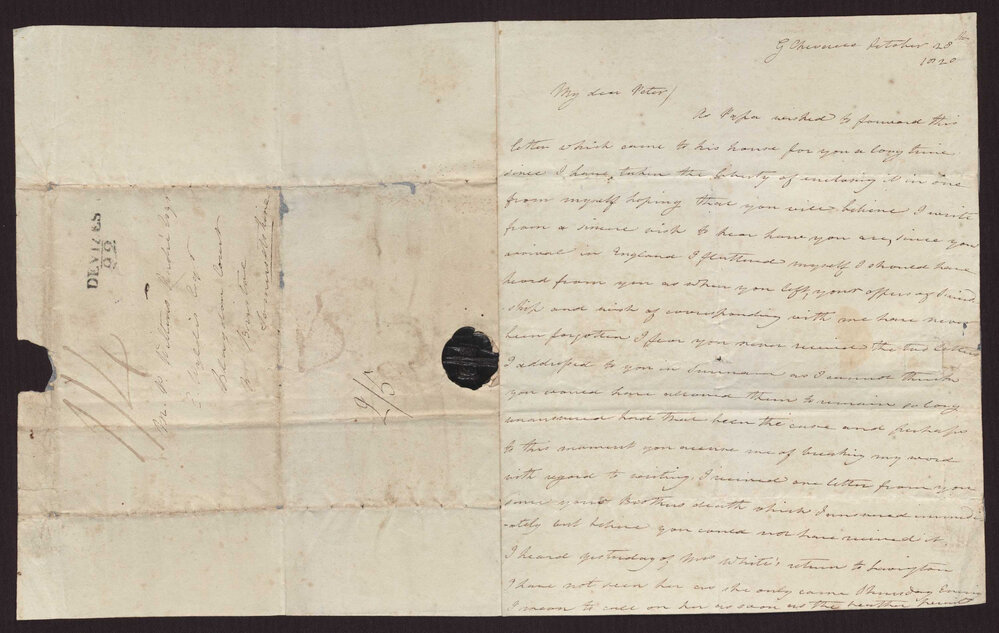 DEVIZES
89
1/4
Mr P
Esqr
Court
Nr Bristol
Somersetshire
2/5
G Cheverell October 28th
1820
My dear Peter/
As Papa wished to forward this
letter which came to his house for you a long time
since I have taken the liberty of enclosing it in one
from myself hoping that you will believe I write
from a sincere wish to hear how you are, since your
arrival in England I flattered myself I should have
heard from you as when you left, your offers of friend
ship and wish of corresponding with me have never
been forgotten I fear you never received the two letters
I addressed to you in as I cannot think
you would have allowed them to remain so long
unanswered had that been the case and perhaps
to this moment you accuse me of breaking my word
with regard to writing, I received one letter from you
since your Brothers death which I answered immedi
ately but believe you could not have received it,
I heard yesterday of Mrs White's return to Lavington
I have not seen her as she only came Thursday Evening
I mean to call on her as soon as the weather permit